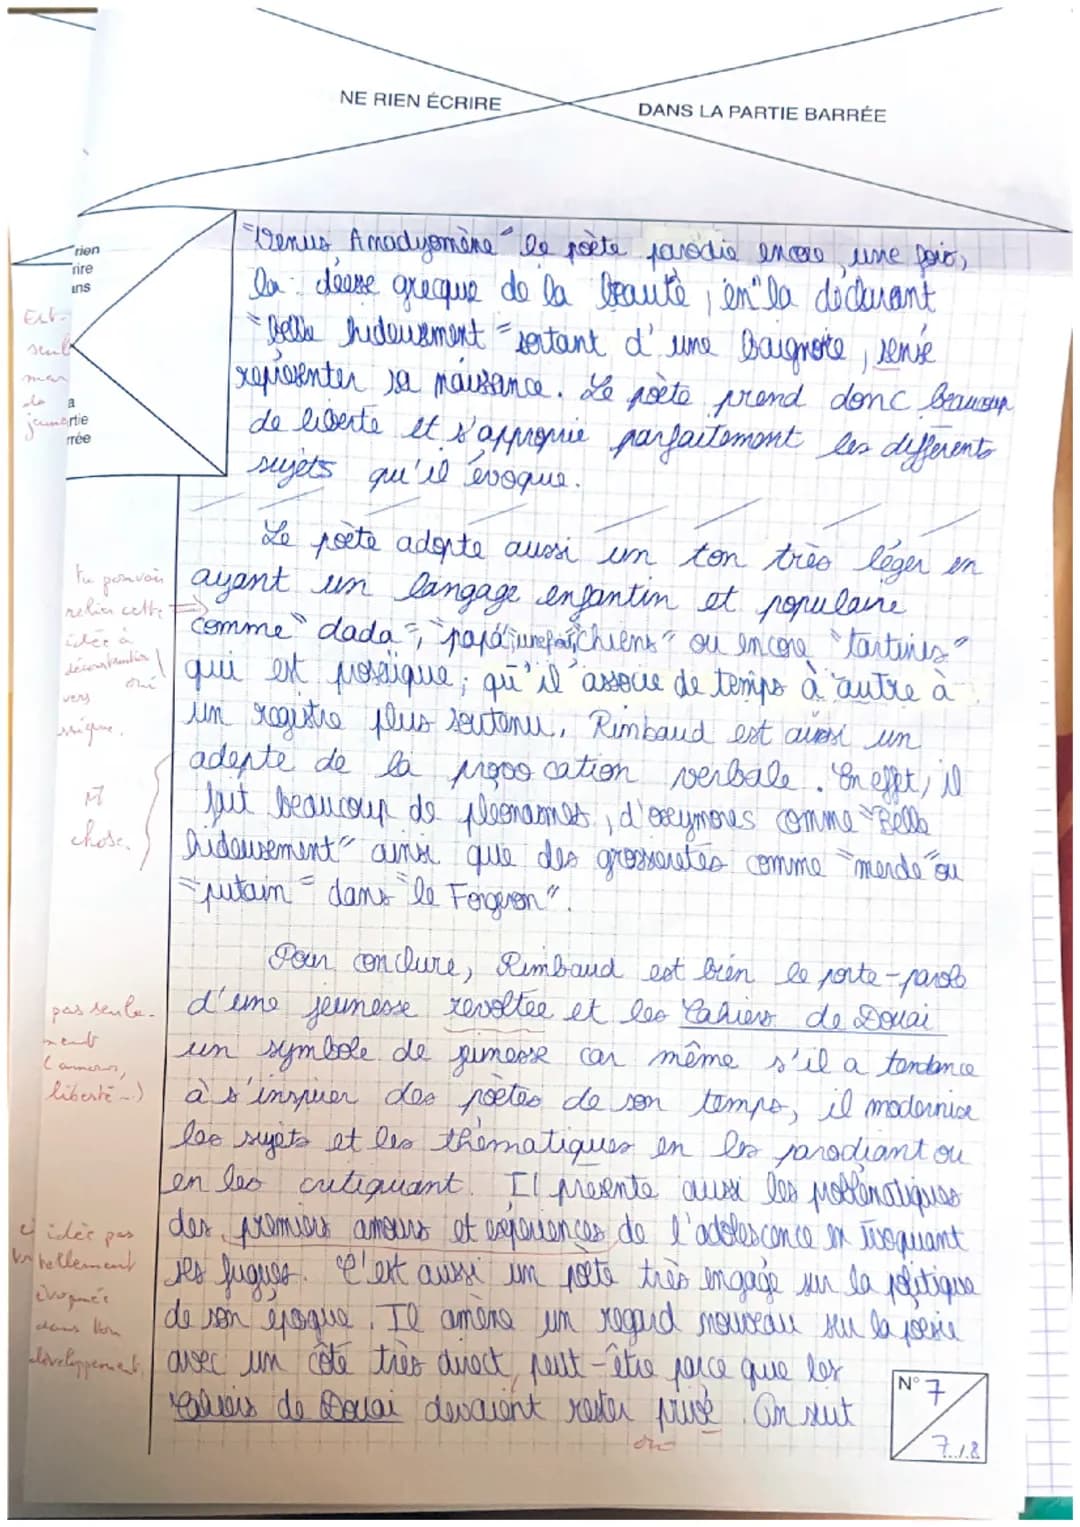 NE RIEN ÉCRIRE
DANS LA PARTIE BARRÉE
rien
rire
ans
a
rtie
rrée
"Venus Anadyomène" le poète parodie encore, une fois,
la déesse grecque de la beauté, en "la déclarant
"Belle hideusement" sortant d'une baignoire, sensé
représenter sa naissance. Le poète prend donc beaucoup
de liberté et s'approprie parfaitement les différents
sujets qu'il évoque.
Le poète adopte aussi un ton très léger en
tu pouvais
relier cette
idée à
déconstruction
vers
ayant un langage enfantin et populaire
comme "dada", "papa", chiens" ou encore "tartines"
qui est prosaïque, qu'il associe de temps à autre à
un registre plus soutenu. Rimbaud est aussi un
adepte de la provocation verbale. En effet, il
M
chose.
fait beaucoup de pléonasmes, d'oxymores comme "Belle
hideusement" ainsi que des grossieretés comme "merde" ou
"putain" dans "le Forgeron".
Pour conclure, Rimbaud est bien le porte-parole
pas seule-
ment
(amours,
liberté...)
d'une jeunesse revoltée et les Cahiers de Douai
un symbole de jeunesse car même s'il a tendance
à s'inspirer des poètes de son temps, il modernise
les sujets et les thématiques en les parodiant ou
en les critiquant. Il présente aussi les problématiques
idée pas
tellement
évoquée
dans ton
développement.
des premiers amours et expériences de l'adolescence en évoquant
ses fugues. C'est aussi un poète très engagé sur la politique
de son époque. Il amène un regard nouveau sur la poésie
avec un côté très direct, peut-être parce que les
Cahiers de Douai devaient rester privé. On suit
N° 7
7../.8